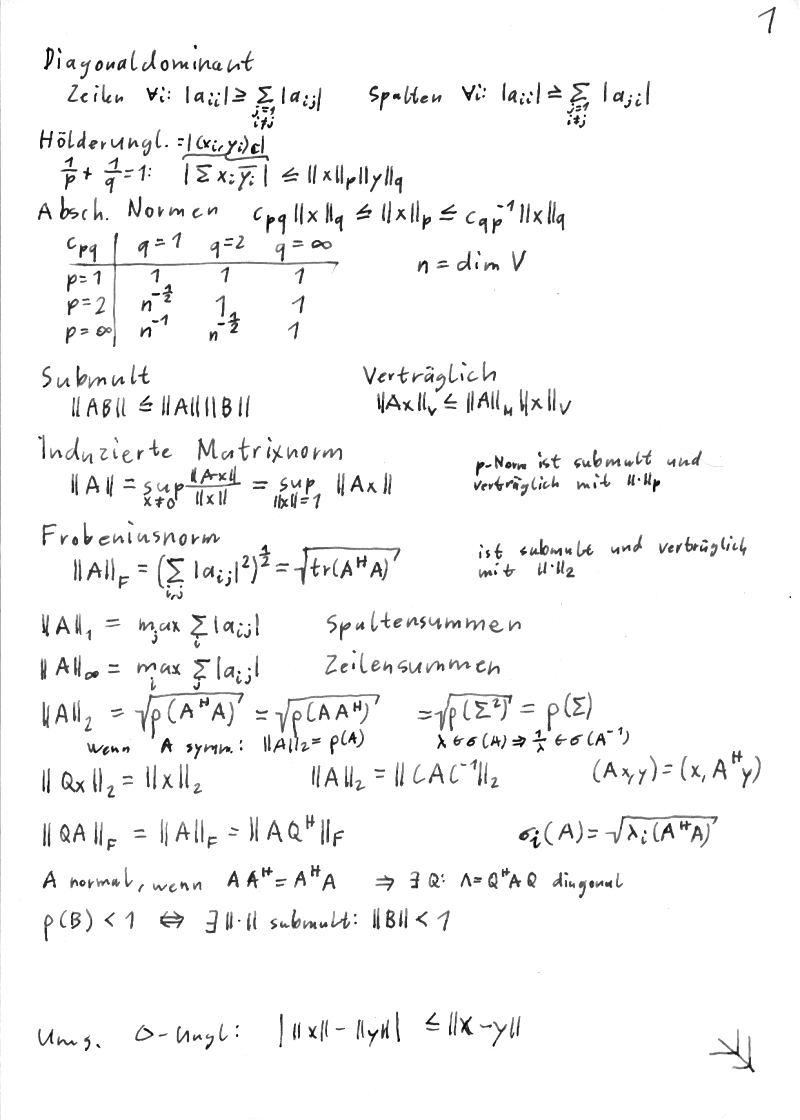 1
Diagonaldominant
Zeilen ∀i: |aᵢᵢ| ≥ Σ_{j=1, i≠j} |aᵢⱼ|   Spalten ∀i: |aᵢᵢ| ≥ Σ_{j=1, i≠j} |aⱼᵢ|
Hölderungl. = |(xᵢ,yᵢ)_ℓ|
1/p + 1/q = 1: |Σ xᵢ y̅ᵢ| ≤ ||x||_p ||y||_q
Absch. Normen c_pq ||x||_q ≤ ||x||_p ≤ c_qp⁻¹ ||x||_q
c_pq | q=1 q=2 q=∞   n = dim V
p=1 | 1 1 1
p=2 | n^{-1/2} 1 1
p=∞ | n⁻¹ n^{-1/2} 1
Submult   Verträglich
||AB|| ≤ ||A|| ||B||   ||Ax||_V ≤ ||A||_M ||x||_V
Induzierte Matrixnorm
p-Norm ist submult und
||A|| = sup_{x≠0} ||Ax||/||x|| = sup_{||x||=1} ||Ax||   verträglich mit ||·||_p
Frobeniusnorm
ist submult und verträglich
||A||_F = (Σ_{i,j} |aᵢⱼ|²)^{1/2} = √tr(A^H A)   mit ||·||₂
||A||₁ = max_j Σ_i |aᵢⱼ|   Spaltensummen
||A||_∞ = max_i Σ_j |aᵢⱼ|   Zeilensummen
||A||₂ = √ρ(A^H A) = √ρ(AA^H) = √ρ(Σ²) = ρ(Σ)
wenn A symm.: ||A||₂ = ρ(A)   λ∈σ(A) ⇒ 1/λ ∈ σ(A⁻¹)
||Qx||₂ = ||x||₂   ||A||₂ = ||CAC⁻¹||₂   (Ax,y) = (x, A^H y)
||QA||_F = ||A||_F = ||AQ^H||_F   σᵢ(A) = √λᵢ(A^H A)
A normal, wenn AA^H = A^H A ⇒ ∃Q: Λ = Q^H A Q diagonal
ρ(B) < 1 ⇔ ∃||·|| submult: ||B|| < 1
Umg. Δ-Ungl: | ||x|| - ||y|| | ≤ ||x-y||